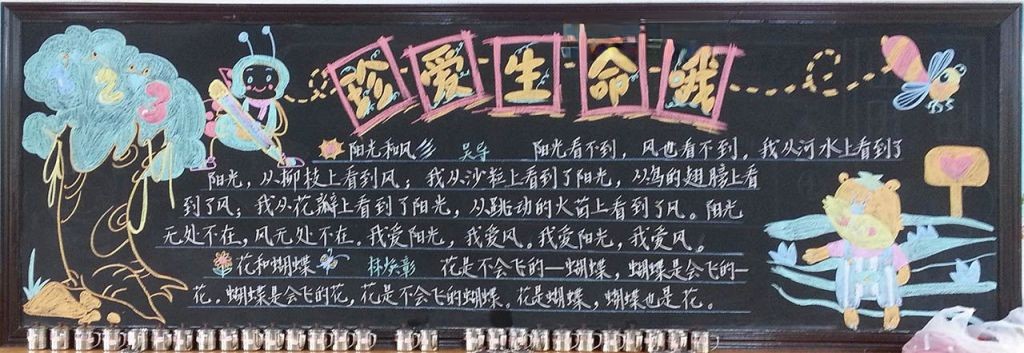 1 2 3
珍爱生命 我
阳光和风 吴导 阳光看不到，风也看不到，我从河水上看到了
阳光，从柳枝上看到风；我从沙粒上看到了阳光，从鸟的翅膀上看
到了风；我从花瓣上看到了阳光，从跳动的火苗上看到了风。阳光
无处不在，风无处不在。我爱阳光，我爱风。我爱阳光，我爱风。
花和蝴蝶 林焕彰 花是不会飞的一蝴蝶，蝴蝶是会飞的一
花。蝴蝶是会飞的花，花是不会飞的蝴蝶。花是蝴蝶，蝴蝶也是花。